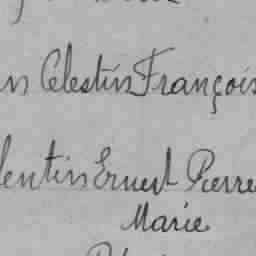 ns Célestin François
lentin Ernest Pierre
Marie